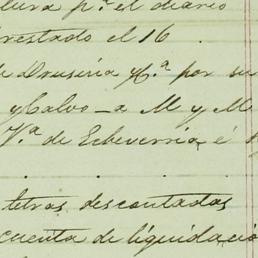 pr. el diario
prestado el 16
de Druseria yCa. por su
y Calvo_a M y M
Va. de Echeverria, é
letras descontadas
cuenta de liquidació